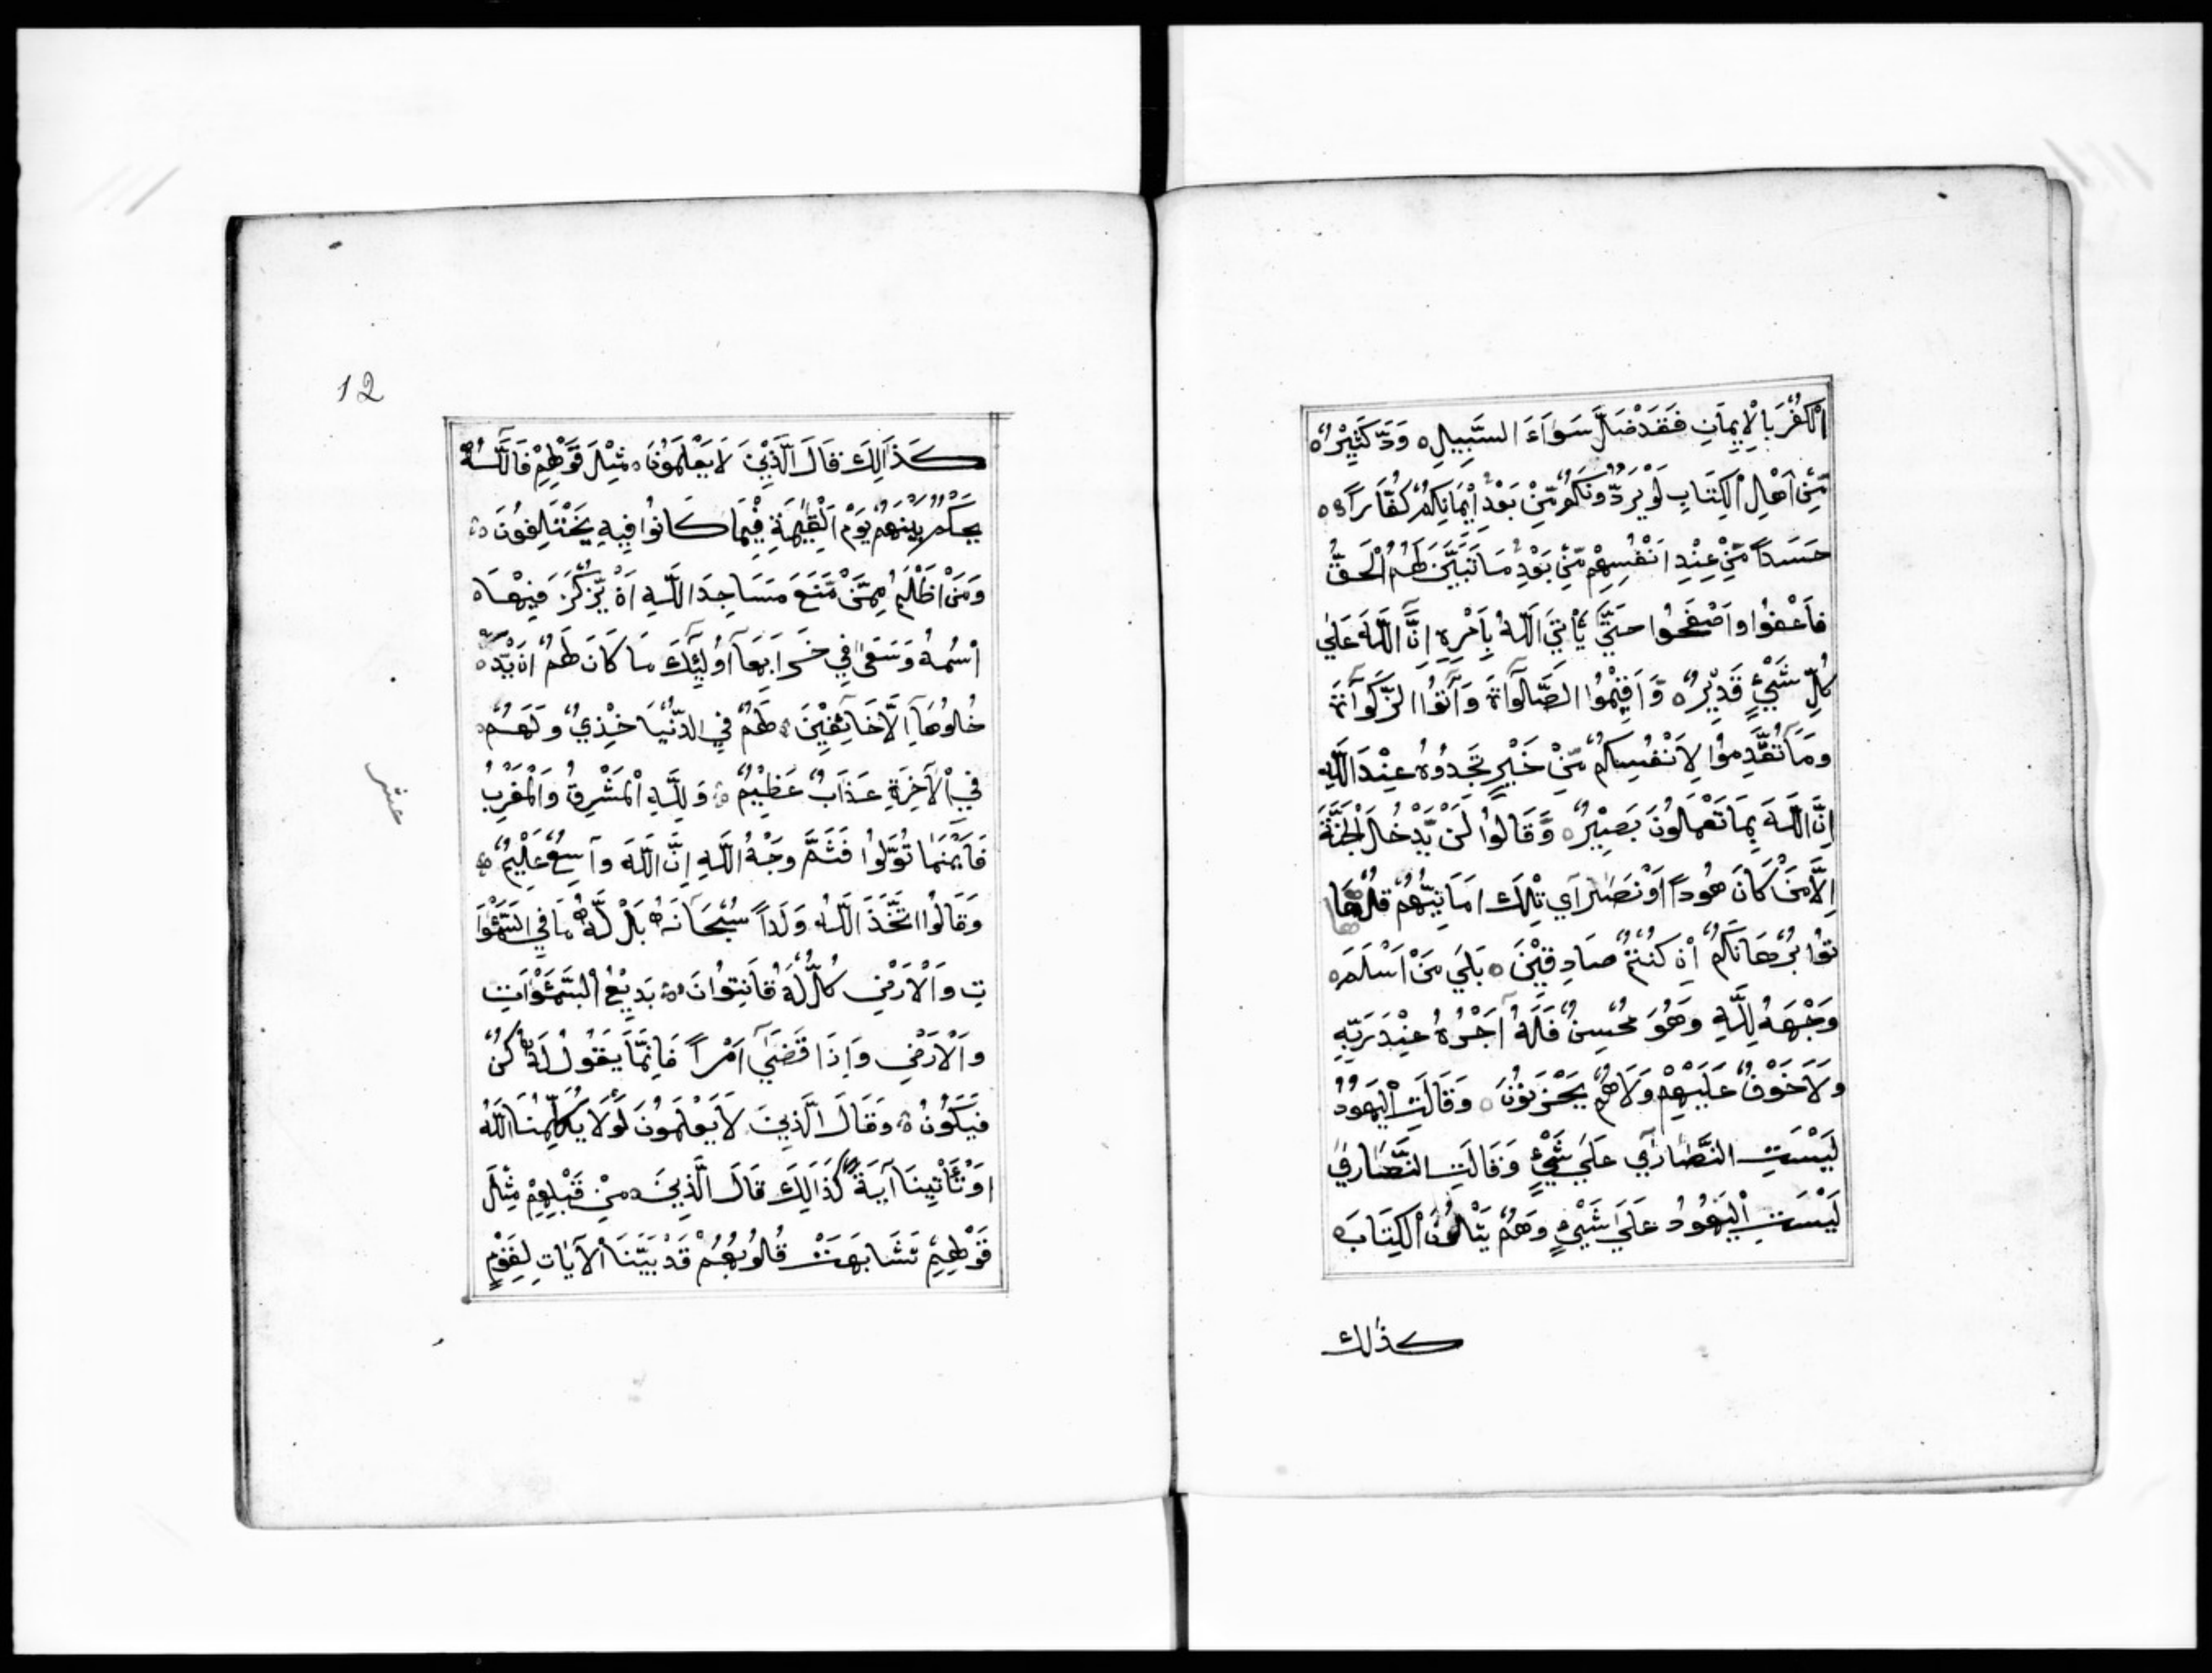 الْكُفْرَ بِالْإِيمَانِ فَقَدْ ضَلَّ سَوَاءَ السَّبِيلِ ه وَدَّ كَثِيْرٌ ه
مِّنْ اَهْلِ الْكِتَابِ لَوْ يَرُدُّونَكُمْ مِّنْ بَعْدِ اِيْمَانِكُمْ كُفَّارًا ه
حَسَداً مِّنْ عِنْدِ اَنْفُسِهِمْ مِّنْ بَعْدِ مَا تَبَيَّنَ لَهُمُ الْحَقُّ
فَاعْفُوا وَاصْفَحُوا حَتَّى يَأْتِيَ اللَّهُ بِأَمْرِهِ اِنَّ اللَّهَ عَلٰي
كُلِّ شَيْءٍ قَدِيْرٌ ه وَّاَقِيْمُوا الصَّلَوٰةَ وَآتُوا الزَّكَوٰةَ
وَمَا تُقَدِّمُوا لِاَنْفُسِكُمْ مِّنْ خَيْرٍ تَجِدُوْهُ عِنْدَ اللَّهِ
اِنَّ اللَّهَ بِمَا تَعْمَلُونَ بَصِيْرٌ ه وَّقَالُوا لَنْ يَّدْخُلَ الْجَنَّةَ
اِلَّا مَنْ كَانَ هُوداً اَوْ نَصَارَي تِلْكَ اَمَانِيُّهُمْ قُلْ هَا
تُوا بُرْهَانَكُمْ اِنْ كُنْتُمْ صَادِقِيْنَ ه بَلَي مَنْ اَسْلَمَ ه
وَجْهَهُ لِلَّهِ وَهُوَ مُحْسِنٌ فَلَهُ اَجْرُهُ عِنْدَ رَبِّهِ
وَلَا خَوْفٌ عَلَيْهِمْ وَلَا هُمْ يَحْزَنُوْنَ ه وَقَالَتِ الْيَهُودُ
لَيْسَتِ النَّصَارَي عَلَي شَيْءٍ وَقَالَتِ النَّصَارَي
لَيْسَتِ الْيَهُودُ عَلَي شَيْءٍ وَهُمْ يَتْلُوْنَ الْكِتَابَ ه
كذٰلك
12
كَذَالِكَ قَالَ الَّذِيْنَ لَا يَعْلَمُوْنَ مِثْلَ قَوْلِهِمْ فَاللَّهُ
يَحْكُمُ بَيْنَهُمْ يَوْمَ الْقِيٰمَةِ فِيْمَا كَانُوا فِيهِ يَخْتَلِفُونَ ه
وَمَنْ اَظْلَمُ مِمَّنْ مَّنَعَ مَسَاجِدَ اللَّهِ اَنْ يُّذْكَرَ فِيْهَا ه
اسْمُهُ وَسَعٰى فِي خَرَابِهَا اُولٰئِكَ مَا كَانَ لَهُمْ اَنْ يَّدْ
خُلُوْهَا اِلَّا خَآئِفِيْنَ ه لَهُمْ فِي الدُّنْيَا خِزْيٌ وَلَهُمْ
فِي الْآخِرَةِ عَذَابٌ عَظِيْمٌ ه وَلِلَّهِ الْمَشْرِقُ وَالْمَغْرِبُ
فَاَيْنَمَا تُوَلُّوا فَثَمَّ وَجْهُ اللَّهِ اِنَّ اللَّهَ وَاسِعٌ عَلِيْمٌ ه
وَقَالُوا اتَّخَذَ اللَّهُ وَلَداً سُبْحَانَهُ بَلْ لَّهُ مَا فِي السَّمٰوَا
تِ وَالْاَرْضِ كُلٌّ لَهُ قَانِتُوْنَ ه بَدِيْعُ السَّمٰوَاتِ
وَالْاَرْضِ وَاِذَا قَضَي اَمْراً فَاِنَّمَا يَقُولُ لَهُ كُنْ
فَيَكُوْنُ ه وَقَالَ الَّذِيْنَ لَا يَعْلَمُوْنَ لَوْلَا يُكَلِّمُنَا اللَّهُ
اَوْ تَأْتِيْنَا آيَةٌ كَذَالِكَ قَالَ الَّذِيْنَ مِنْ قَبْلِهِمْ مِثْلَ
قَوْلِهِمْ تَشَابَهَتْ قُلُوْبُهُمْ قَدْ بَيَّنَّا الْآيَاتِ لِقَوْمٍ
عشر